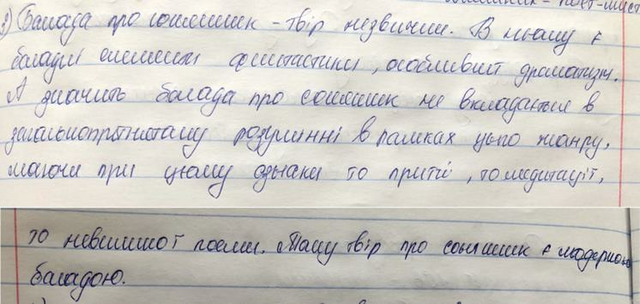 3) Балада про соняшник - твір незвичний. В ньому є
баладні елементи фантастики, особливий драматизм.
А значить балада про соняшник не вкладається в
загальноприйнятому розумінні в рамках цього жанру,
маючи при цьому ознаки то притчі, то медитації,
то невеликої поеми. Тому твір про соняшник є модерною
баладою.